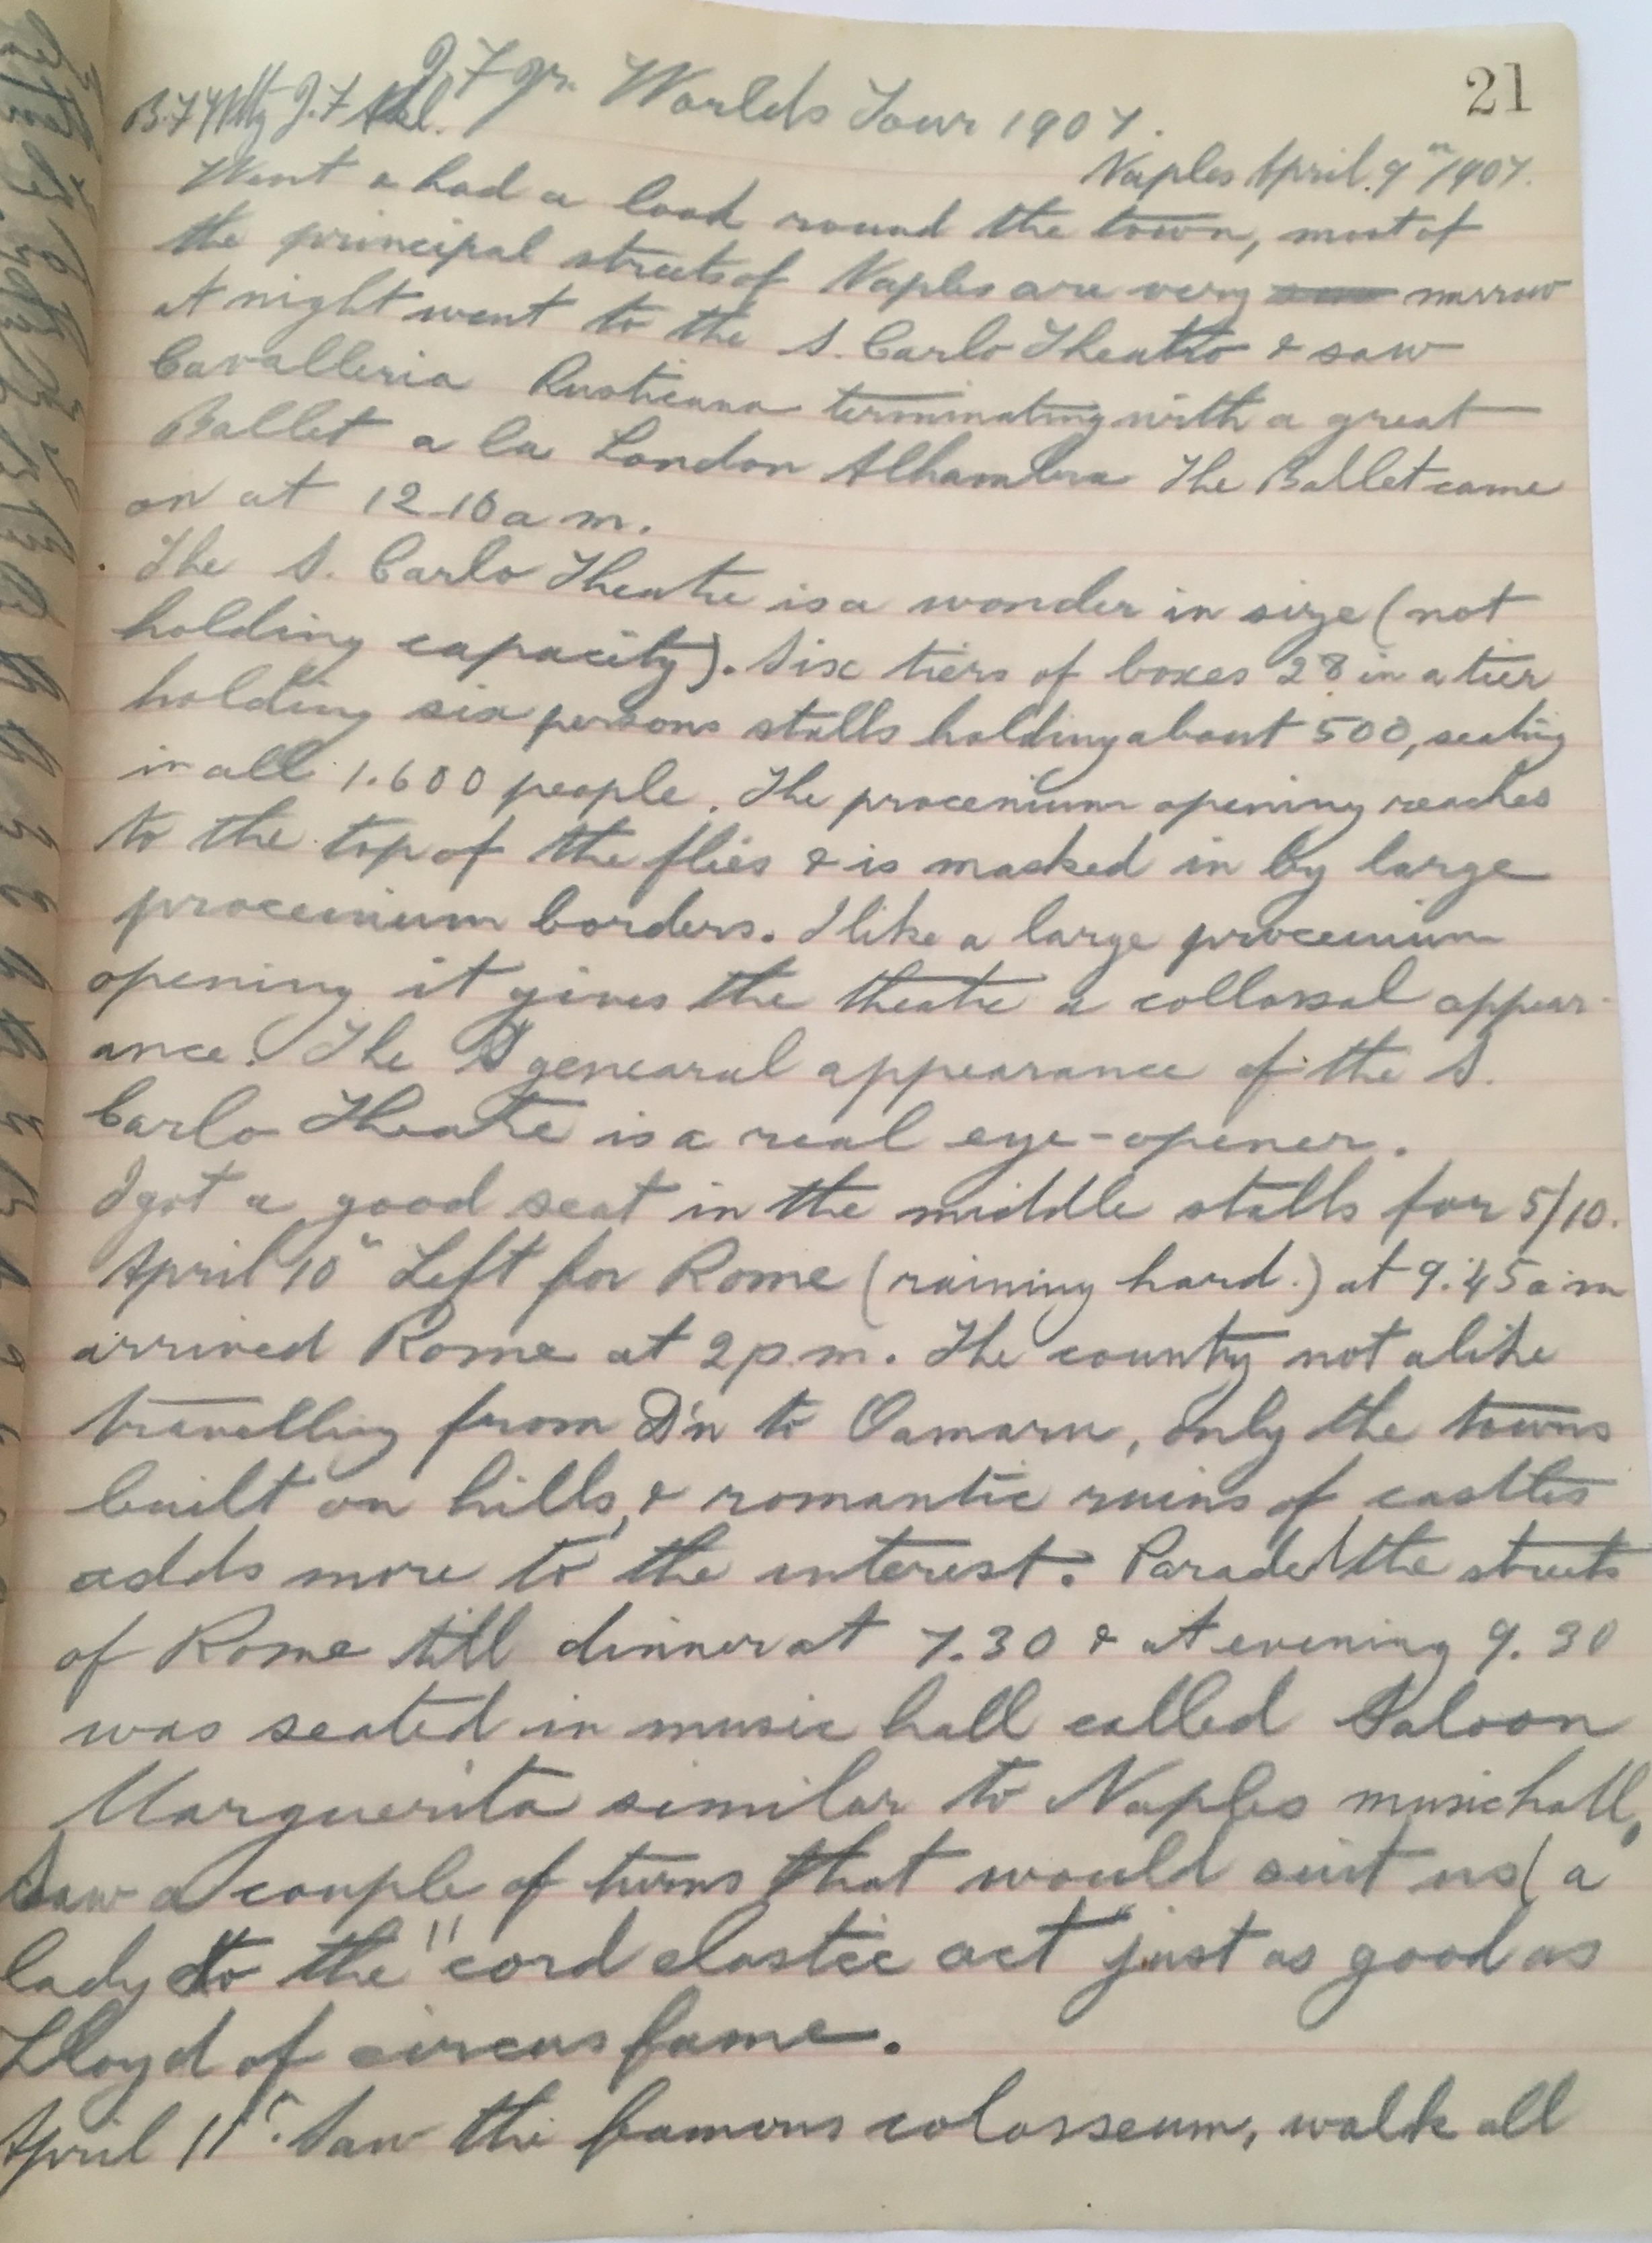 21
J. F. Jr. Worlds Tour 1907.
Naples April. 9th/1907.
Went & had a look round the town, most of
the principal streets of Naples are very narrow
at night went to the S. Carlo Theatro & saw
Cavalleria Rusticana terminating with a great
Ballet a la London Alhambra The Ballet came
on at 12-10 a m.
The S. Carlo Theatre is a wonder in size (not
holding capacity). Six tiers of boxes 28 in a tier
holding six persons stalls holding about 500, seating
in all 1.600 people. The procenium opening reaches
to the top of the flies & is masked in by large
procenium borders. I like a large procenium
opening it gives the theatre a collossal appear-
ance. The genearal appearance of the S.
Carlo Theatre is a real eye-opener.
I got a good seat in the middle stalls for 5/10.
April 10" Left for Rome (raining hard.) at 9.45 a m
arrived Rome at 2 p.m. The county not alike
travelling from D'n to Oamaru, only the towns
built on hills, & romantic ruins of castles
adds more to the interest. Paraded the streets
of Rome till dinner at 7.30 & at evening 9.30
was seated in music hall called Saloon
Marguerita similar to Naples music hall,
Saw a couple of turns that would suit us (a
lady do the "cord elastic act" just as good as
Lloyd of circus fame.
April 11". Saw the famous colosseum, walk all